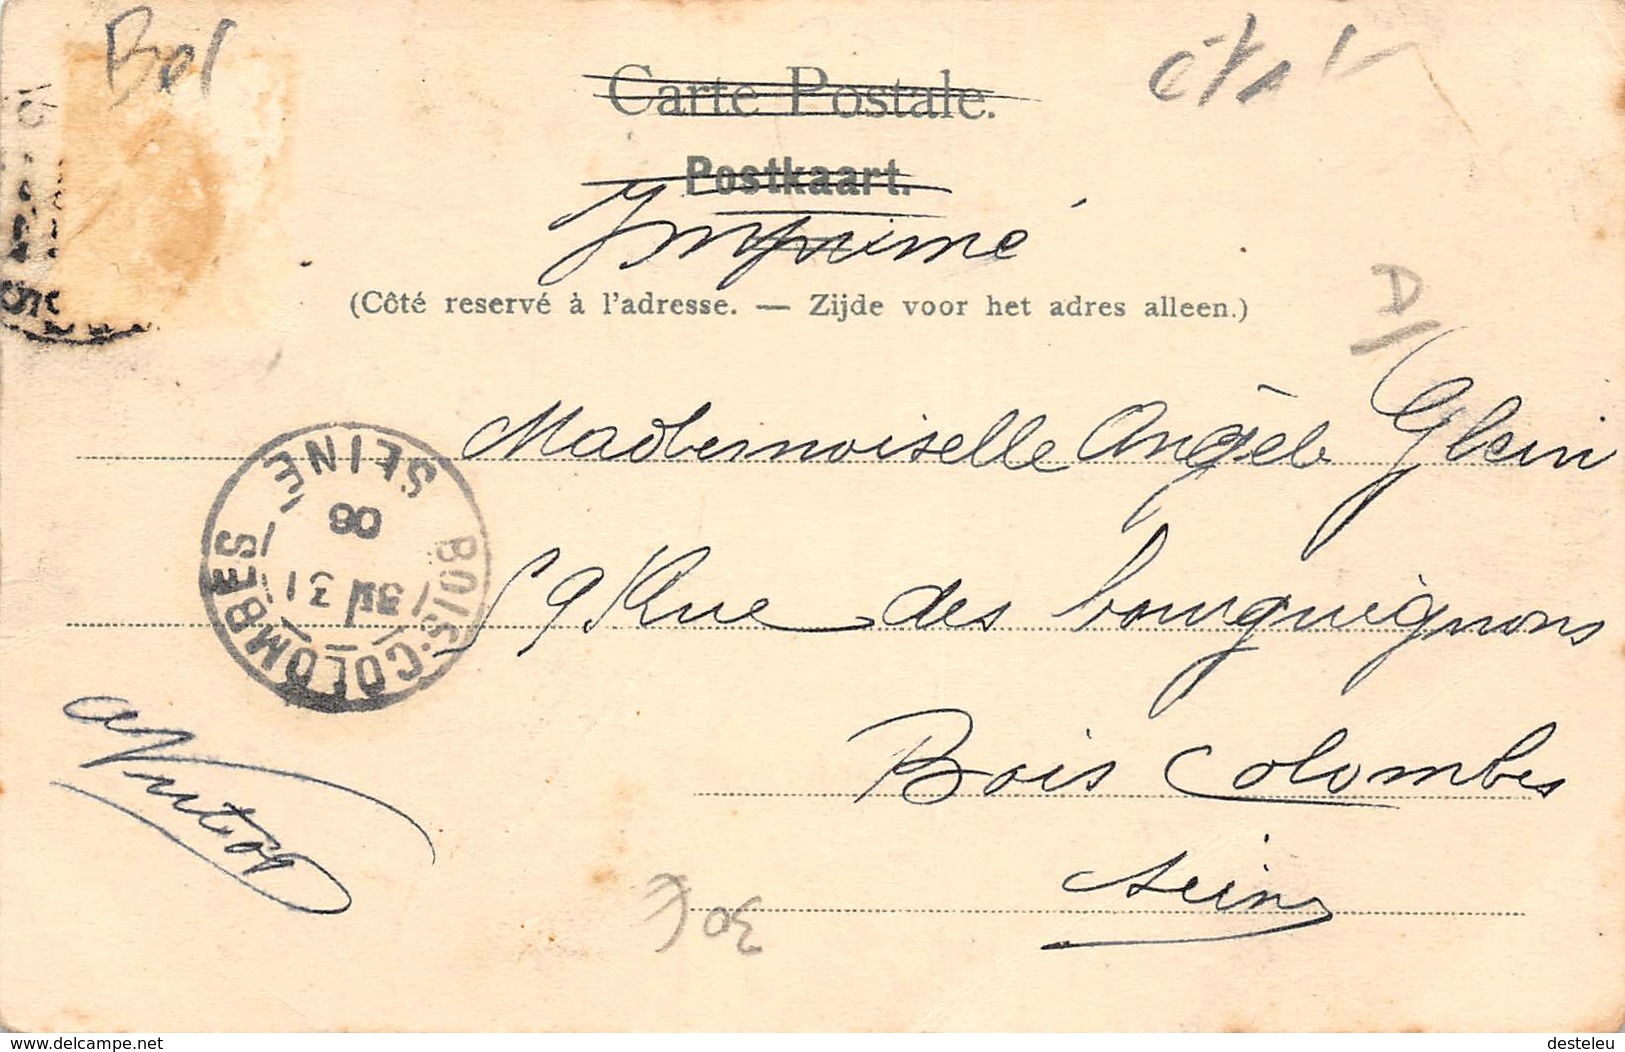 Bel
état
Carte Postale.
Postkaart.
Imprimé
(Côté reservé à l'adresse. — Zijde voor het adres alleen.)
D/
Mademoiselle Angèle Glein
59 Rue des bourguignons
Bois Colombes
Seine
BOIS-COLOMBES
SEINE
31
06
30F
delcampe.net
desteleu